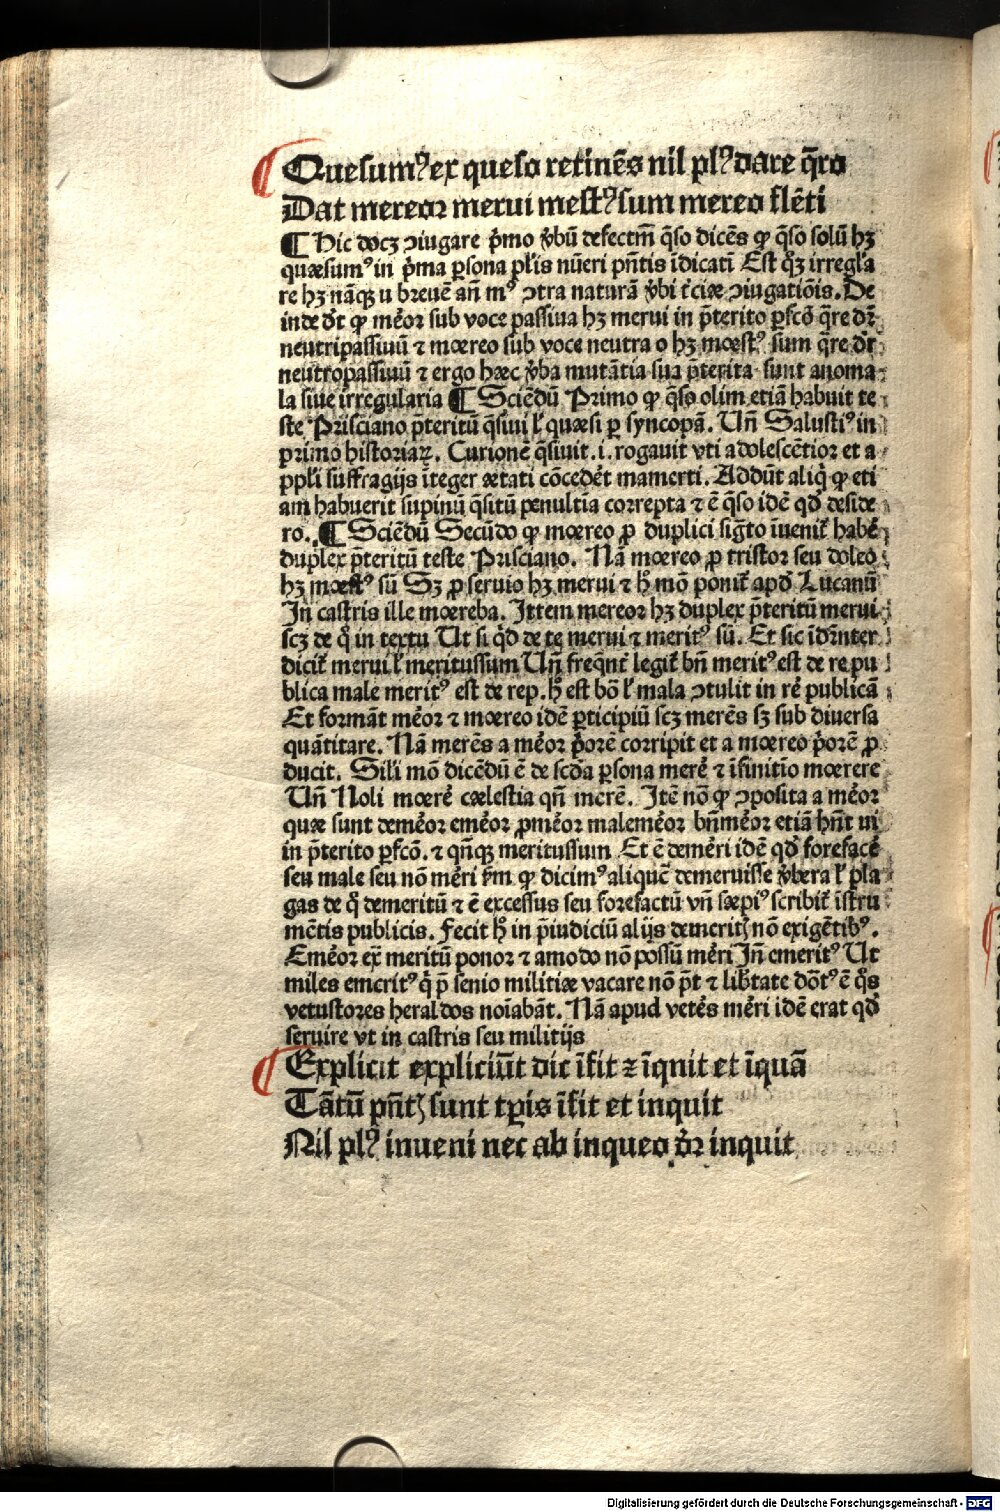 Quesumꝰ ex queso retinēs nil plꝰ dare q̄ro
Dat mereor merui mestꝰ sum mereo flēti
¶ Hic docꝫ ↄiugare p̄mo v̄bū defectiū q̄so dicēs ꝙ q̄so solū hꝫ
quæsumꝰ in p̄ma ꝑsona pl̄is nūeri pn̄tis īdicati Est q̄ꝫ irregl̄a
re hꝫ nāqꝫ u breuē an̄ mꝰ ↄtra naturā v̄bi t̄ciæ ↄiugatiōis. De
inde dr̄ ꝙ mēor sub voce passiua hꝫ merui in p̄terito ꝑfcō q̄re dr̄
neutripassiuū ⁊ mœreo sub voce neutra o hꝫ mœstꝰ sum q̄re dr̄
neutropassiuū ⁊ ergo hæc v̄ba mutātia sua p̄terita sunt anoma
la siue irregularia ¶ Sciēdū Primo ꝙ q̄so olim etiā habuit te
ste Prisciano p̄teritū q̄siui l̄ quæsi ꝑ syncopā. Un̄ Salustiꝰ in
primo historiaꝝ. Curionē q̄siuit .i. rogauit vti adolescētior et a
ꝓpl̄i suffragijs īteger ætati cōcedēt mamerti. Addūt aliq̄ ꝙ eti
am habuerit supinū q̄situ penultīa correpta ⁊ ē q̄so idē qd̄ deside
ro. ¶ Sciēdū Secūdo ꝙ mœreo ꝓ duplici sigt̄o īuenit̄ habē
duplex p̄teritū teste Prisciano. Nā mœreo ꝓ tristor seu doleo
hꝫ mœstꝰ sū Sꝫ ꝓ seruio hꝫ merui ⁊ h̄ mō ponit̄ apd̄ Lucanū
In̄ castris ille mœreba. Ittem mereor hꝫ duplex p̄teritū merui
scꝫ de q̄ in textu Ut si qd̄ de te merui ⁊ meritꝰ sū. Et sic īdr̄nter
dicit̄ merui l̄ meritussum Un̄ freq̄nt̄ legit̄ bn̄ meritꝰ est de re pu
blica male meritꝰ est de rep. h̄ est bō l̄ mala ↄtulit in rē publicā
Et formāt mēor ⁊ mœreo idē ꝑticipiū scꝫ merēs sꝫ sub diuersa
quātitare. Nā merēs a mēor p̄orē corripit et a mœreo p̄orē ꝓ
ducit. Sil̄i mō dicēdū ē de scd̄a ꝑsona merē ⁊ īfinitīo mœrere
Un̄ Noli mœrē cælestia qn̄ merē. Itē nō ꝙ ↄposita a mēor
quæ sunt demēor emēor ꝓmēor malemēor bn̄mēor etiā hn̄t ui
in p̄terito ꝑfcō. ⁊ qn̄qꝫ meritussum Et ē demēri idē qd̄ forefacē
seu male seu nō mēri s̄m ꝙ dicimꝰ aliquē demeruisse v̄bera l̄ pla
gas de q̄ demeritū ⁊ ē excessus seu forefactū vn̄ sæpiꝰ scribit̄ īstru
mētis publicis. Fecit h̄ in p̄iudiciū alijs demeritꝫ nō exigētibꝰ.
Emēor ex̄ meritū ponor ⁊ amodo nō possū mēri In̄ emeritꝰ Ut
miles emeritꝰ q̄ p̄ senio militiæ vacare nō p̄t ⁊ lib̄tate dōtꝰ ē q̄s
vetustores heraldos noīabāt. Nā apud vetēs mēri idē erat qd̄
seruire vt in castris seu militijs
Explicit expliciūt dic īfit ⁊ īqnit et īquā
Tātū pn̄tꝫ sunt tꝑis īfit et inquit
Nil plꝰ inueni nec ab inqueo dr̄ inquit
Digitalisierung gefördert durch die Deutsche Forschungsgemeinschaft - DFG